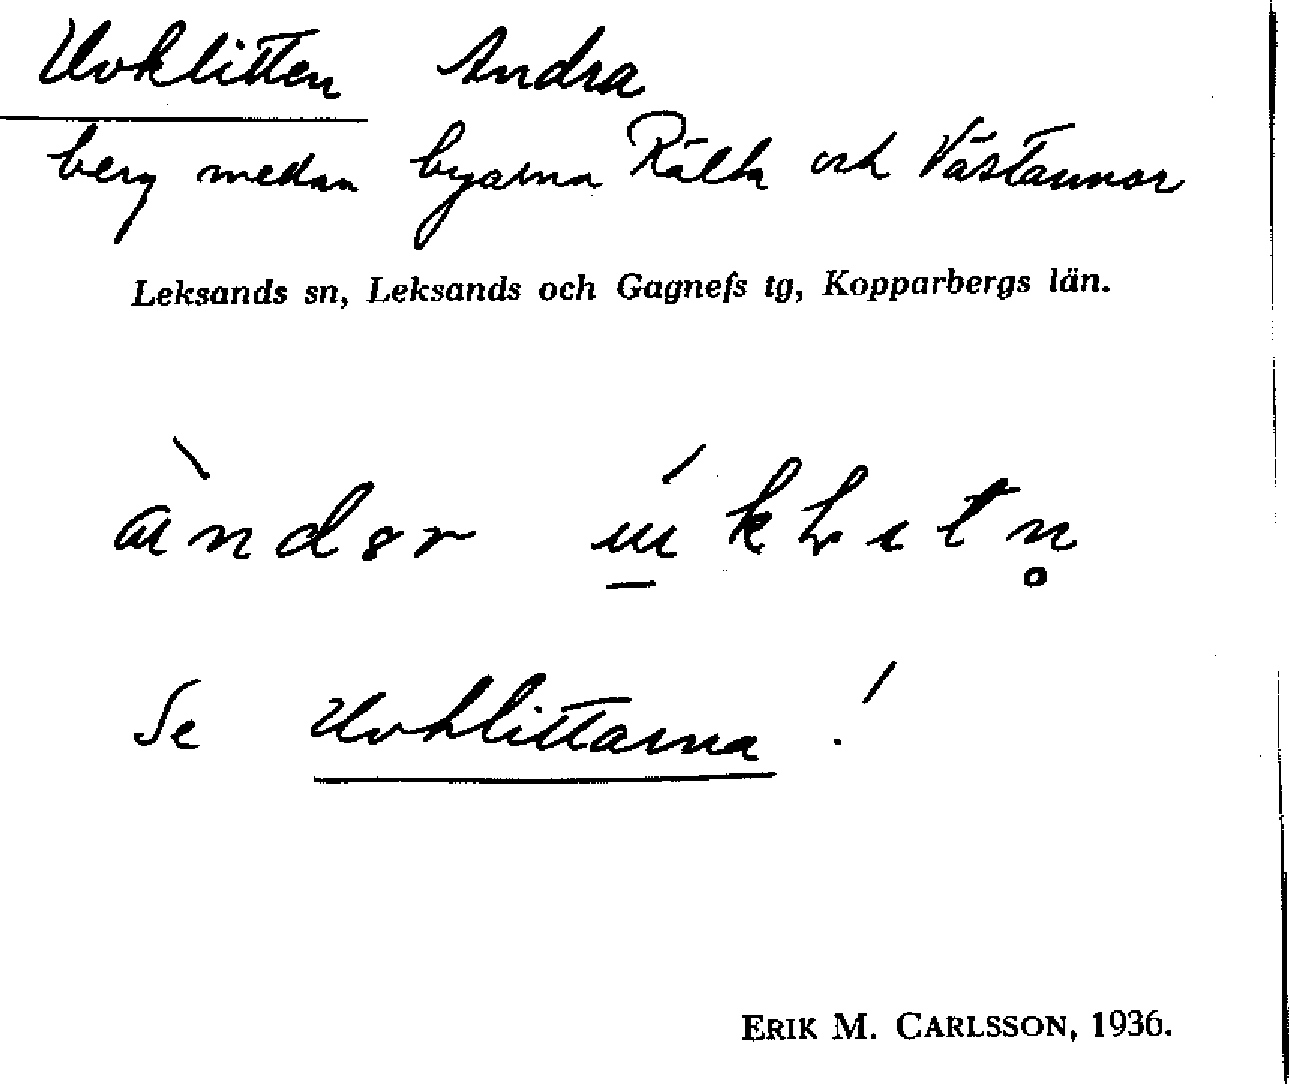 Uvklitten Andra
berg medan byarna Rälta och Västannor
Leksands sn, Leksands och Gagnefs tg, Kopparbergs län.
Se Uvklittarna!
ERIK M. CARLSSON, 1936.